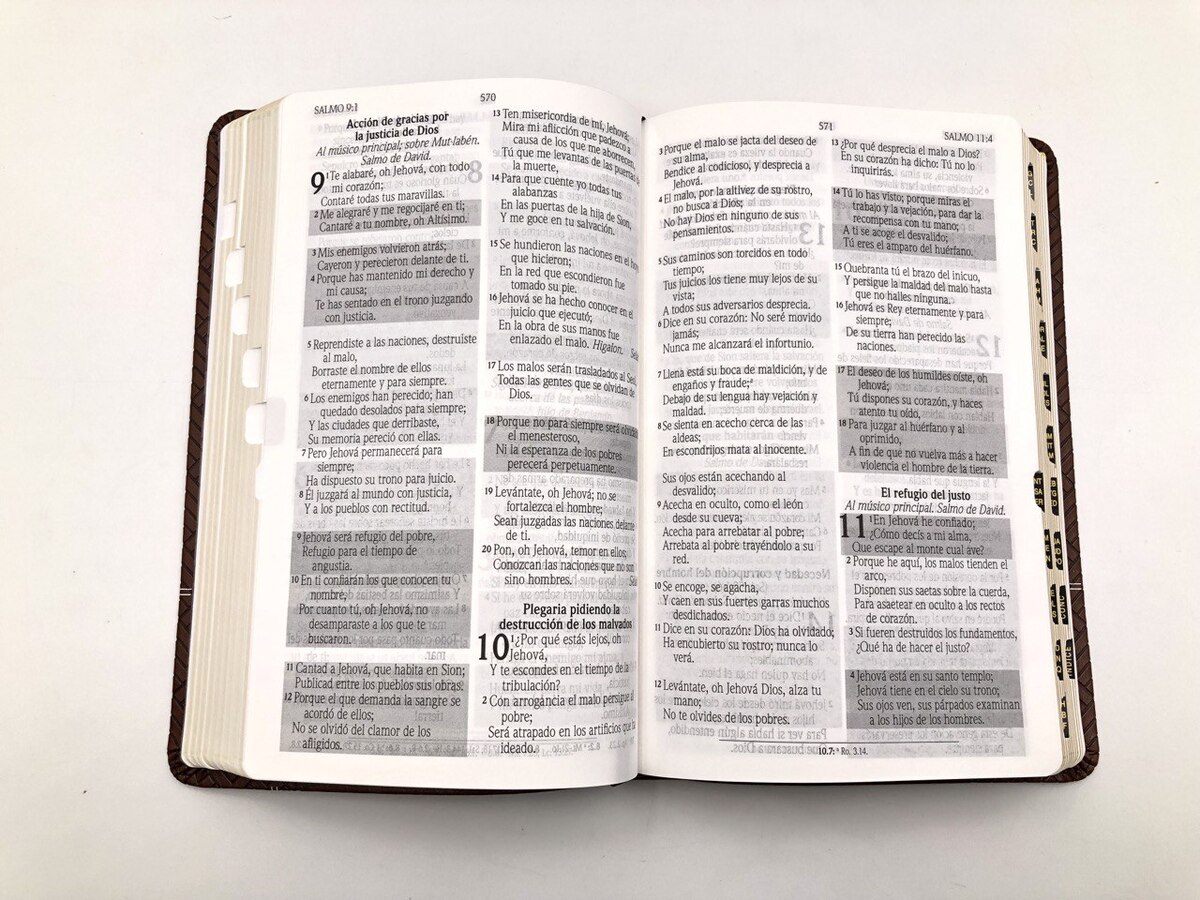 SALMO 9:1
570
Acción de gracias por
la justicia de Dios
Al músico principal; sobre Mut-labén.
Salmo de David.
9 1 Te alabaré, oh Jehová, con todo
mi corazón;
Contaré todas tus maravillas.
2 Me alegraré y me regocijaré en ti;
Cantaré a tu nombre, oh Altísimo.
3 Mis enemigos volvieron atrás;
Cayeron y perecieron delante de ti.
4 Porque has mantenido mi derecho y
mi causa;
Te has sentado en el trono juzgando
con justicia.
5 Reprendiste a las naciones, destruiste
al malo,
Borraste el nombre de ellos
eternamente y para siempre.
6 Los enemigos han perecido; han
quedado desolados para siempre;
Y las ciudades que derribaste,
Su memoria pereció con ellas.
7 Pero Jehová permanecerá para
siempre;
Ha dispuesto su trono para juicio.
8 Él juzgará al mundo con justicia,
Y a los pueblos con rectitud.
9 Jehová será refugio del pobre,
Refugio para el tiempo de
angustia.
10 En ti confiarán los que conocen tu
nombre,
Por cuanto tú, oh Jehová, no
desamparaste a los que te
buscaron.
11 Cantad a Jehová, que habita en Sion;
Publicad entre los pueblos sus obras.
12 Porque el que demanda la sangre se
acordó de ellos;
No se olvidó del clamor de los
afligidos.
13 Ten misericordia de mí, Jehová;
Mira mi aflicción que padezco a
causa de los que me aborrecen,
Tú que me levantas de las puertas de
la muerte,
14 Para que cuente yo todas tus
alabanzas
En las puertas de la hija de Sion,
Y me goce en tu salvación.
15 Se hundieron las naciones en el hoyo
que hicieron;
En la red que escondieron fue
tomado su pie.
16 Jehová se ha hecho conocer en el
juicio que ejecutó;
En la obra de sus manos fue
enlazado el malo. Higaion.
17 Los malos serán trasladados al Seol,
Todas las gentes que se olvidan de
Dios.
18 Porque no para siempre será olvidado
el menesteroso,
Ni la esperanza de los pobres
perecerá perpetuamente.
19 Levántate, oh Jehová; no se
fortalezca el hombre;
Sean juzgadas las naciones delante
de ti.
20 Pon, oh Jehová, temor en ellos;
Conozcan las naciones que no son
sino hombres.
Plegaria pidiendo la
destrucción de los malvados
10 1 ¿Por qué estás lejos, oh
Jehová,
Y te escondes en el tiempo de la
tribulación?
2 Con arrogancia el malo persigue al
pobre;
Será atrapado en los artificios que ha
ideado.
571
SALMO 11:4
3 Porque el malo se jacta del deseo de
su alma,
Bendice al codicioso, y desprecia a
Jehová.
4 El malo, por la altivez de su rostro,
no busca a Dios;
No hay Dios en ninguno de sus
pensamientos.
5 Sus caminos son torcidos en todo
tiempo;
Tus juicios los tiene muy lejos de su
vista;
A todos sus adversarios desprecia.
6 Dice en su corazón: No seré movido
jamás;
Nunca me alcanzará el infortunio.
7 Llena está su boca de maldición, y de
engaños y fraude;a
Debajo de su lengua hay vejación y
maldad.
8 Se sienta en acecho cerca de las
aldeas;
En escondrijos mata al inocente.
Sus ojos están acechando al
desvalido;
9 Acecha en oculto, como el león
desde su cueva;
Acecha para arrebatar al pobre;
Arrebata al pobre trayéndolo a su
red.
10 Se encoge, se agacha,
Y caen en sus fuertes garras muchos
desdichados.
11 Dice en su corazón: Dios ha olvidado;
Ha encubierto su rostro; nunca lo
verá.
12 Levántate, oh Jehová Dios, alza tu
mano;
No te olvides de los pobres.
13 ¿Por qué desprecia el malo a Dios?
En su corazón ha dicho: Tú no lo
inquirirás.
14 Tú lo has visto; porque miras el
trabajo y la vejación, para dar la
recompensa con tu mano;
A ti se acoge el desvalido;
Tú eres el amparo del huérfano.
15 Quebranta tú el brazo del inicuo,
Y persigue la maldad del malo hasta
que no halles ninguna.
16 Jehová es Rey eternamente y para
siempre;
De su tierra han perecido las
naciones.
17 El deseo de los humildes oíste, oh
Jehová;
Tú dispones su corazón, y haces
atento tu oído,
18 Para juzgar al huérfano y al
oprimido,
A fin de que no vuelva más a hacer
violencia el hombre de la tierra.
El refugio del justo
Al músico principal. Salmo de David.
11 1 En Jehová he confiado;
¿Cómo decís a mi alma,
Que escape al monte cual ave?
2 Porque he aquí, los malos tienden el
arco,
Disponen sus saetas sobre la cuerda,
Para asaetear en oculto a los rectos
de corazón.
3 Si fueren destruidos los fundamentos,
¿Qué ha de hacer el justo?
4 Jehová está en su santo templo;
Jehová tiene en el cielo su trono;
Sus ojos ven, sus párpados examinan
a los hijos de los hombres.
10.7: a Ro. 3.14.
ÍNDICE